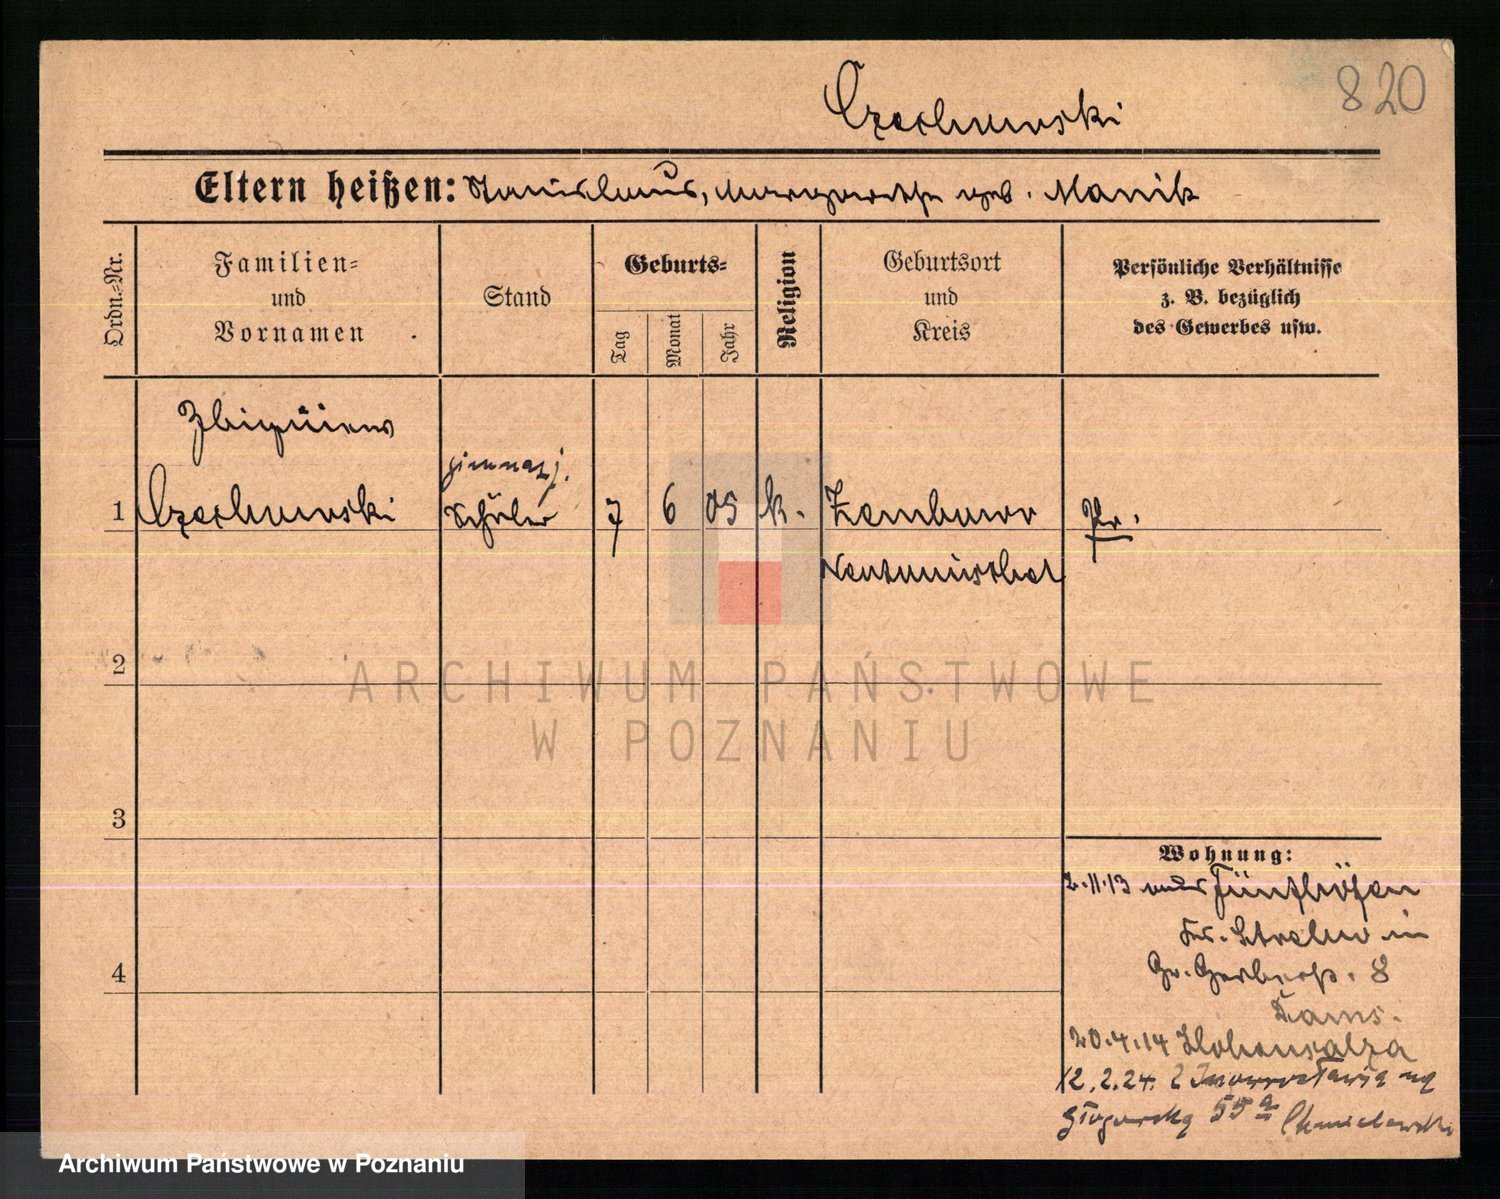 820
Czechowski
Eltern heißen: Stanislaus, Margarethe geb. Manik
Ordn.-Nr.
Familien- und Vornamen
Stand
Geburts-
Tag
Monat
Jahr
Religion
Geburtsort und Kreis
Persönliche Verhältnisse
z. B. bezüglich
des Gewerbes usw.
Zbigniew
gimnasj.
1 Czechowski Schüler 7 6 05 k. Zembowo Pr.
Neutomischel
2
ARCHIWUM PAŃSTWOWE
W POZNANIU
3
Wohnung:
2.11.13 Fünfhöfen
Kr. Strelno in
4
Gr. Gerberstr. 8
20.4.14 Hohensalza
12.2.24. z Inowrocławia na
Głogowską 55a Chmielewski
Archiwum Państwowe w Poznaniu